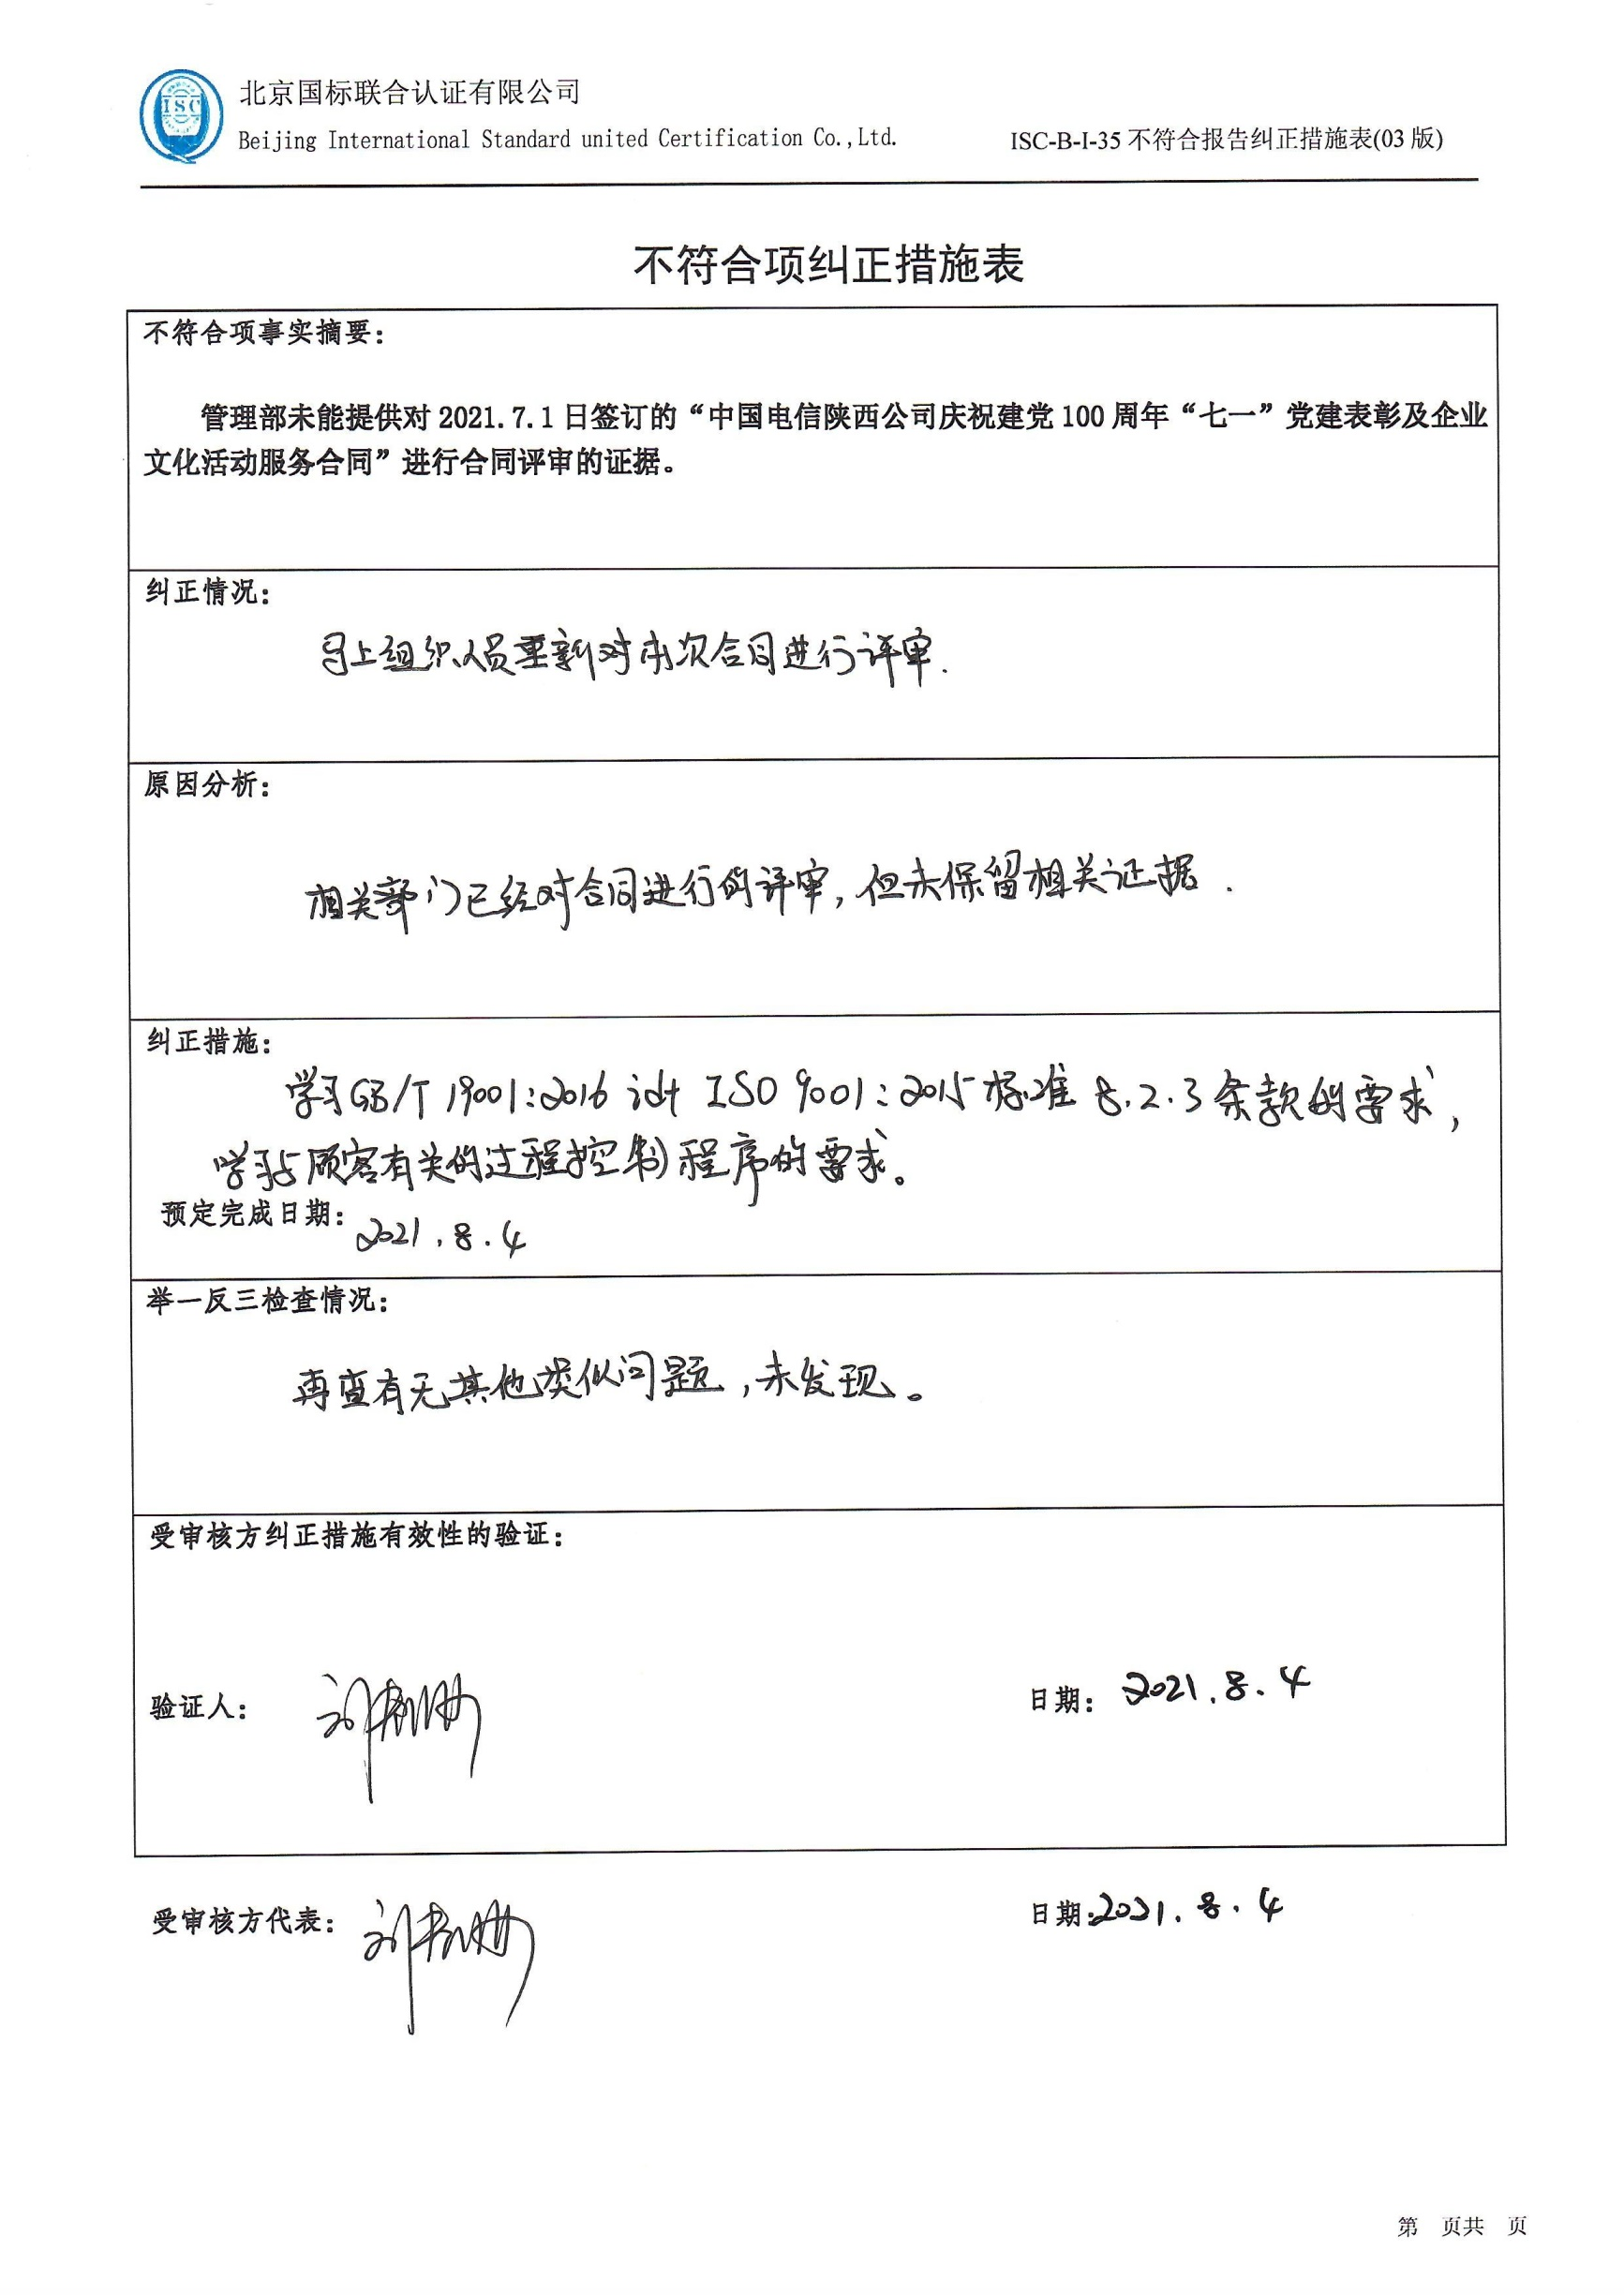 ISC
北京国标联合认证有限公司
Beijing International Standard united Certification Co.,Ltd.
ISC-B-I-35 不符合报告纠正措施表(03 版)
不符合项纠正措施表
不符合项事实摘要：
管理部未能提供对 2021.7.1 日签订的“中国电信陕西公司庆祝建党 100 周年“七一”党建表彰及企业
文化活动服务合同”进行合同评审的证据。
纠正情况：
马上组织人员重新对本次合同进行评审.
原因分析：
相关部门已经对合同进行的评审，但未保留相关证据.
纠正措施：
学习GB/T 19001:2016 idt ISO 9001:2015标准 8.2.3条款的要求，
学习与顾客有关的过程控制程序的要求。
预定完成日期：2021.8.4
举一反三检查情况：
再查有无其他类似问题，未发现。
受审核方纠正措施有效性的验证：
验证人：
日期：2021.8.4
受审核方代表：
日期:2021.8.4
第 页共 页